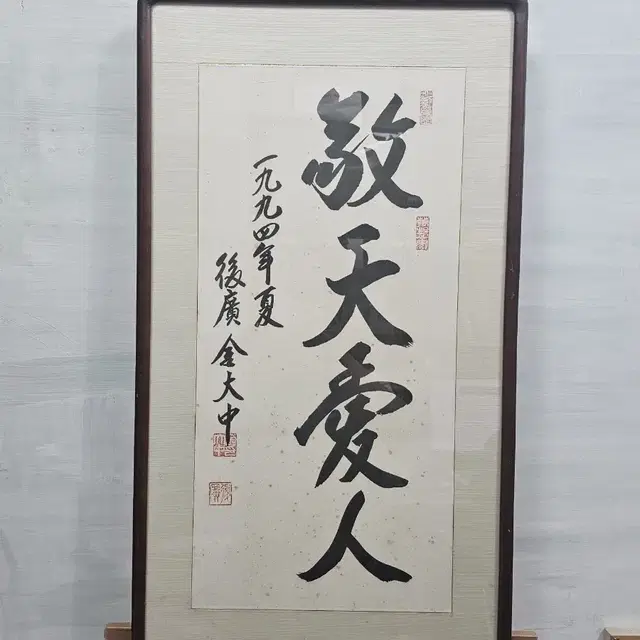 敬天愛人
一九九四年夏
後廣金大中